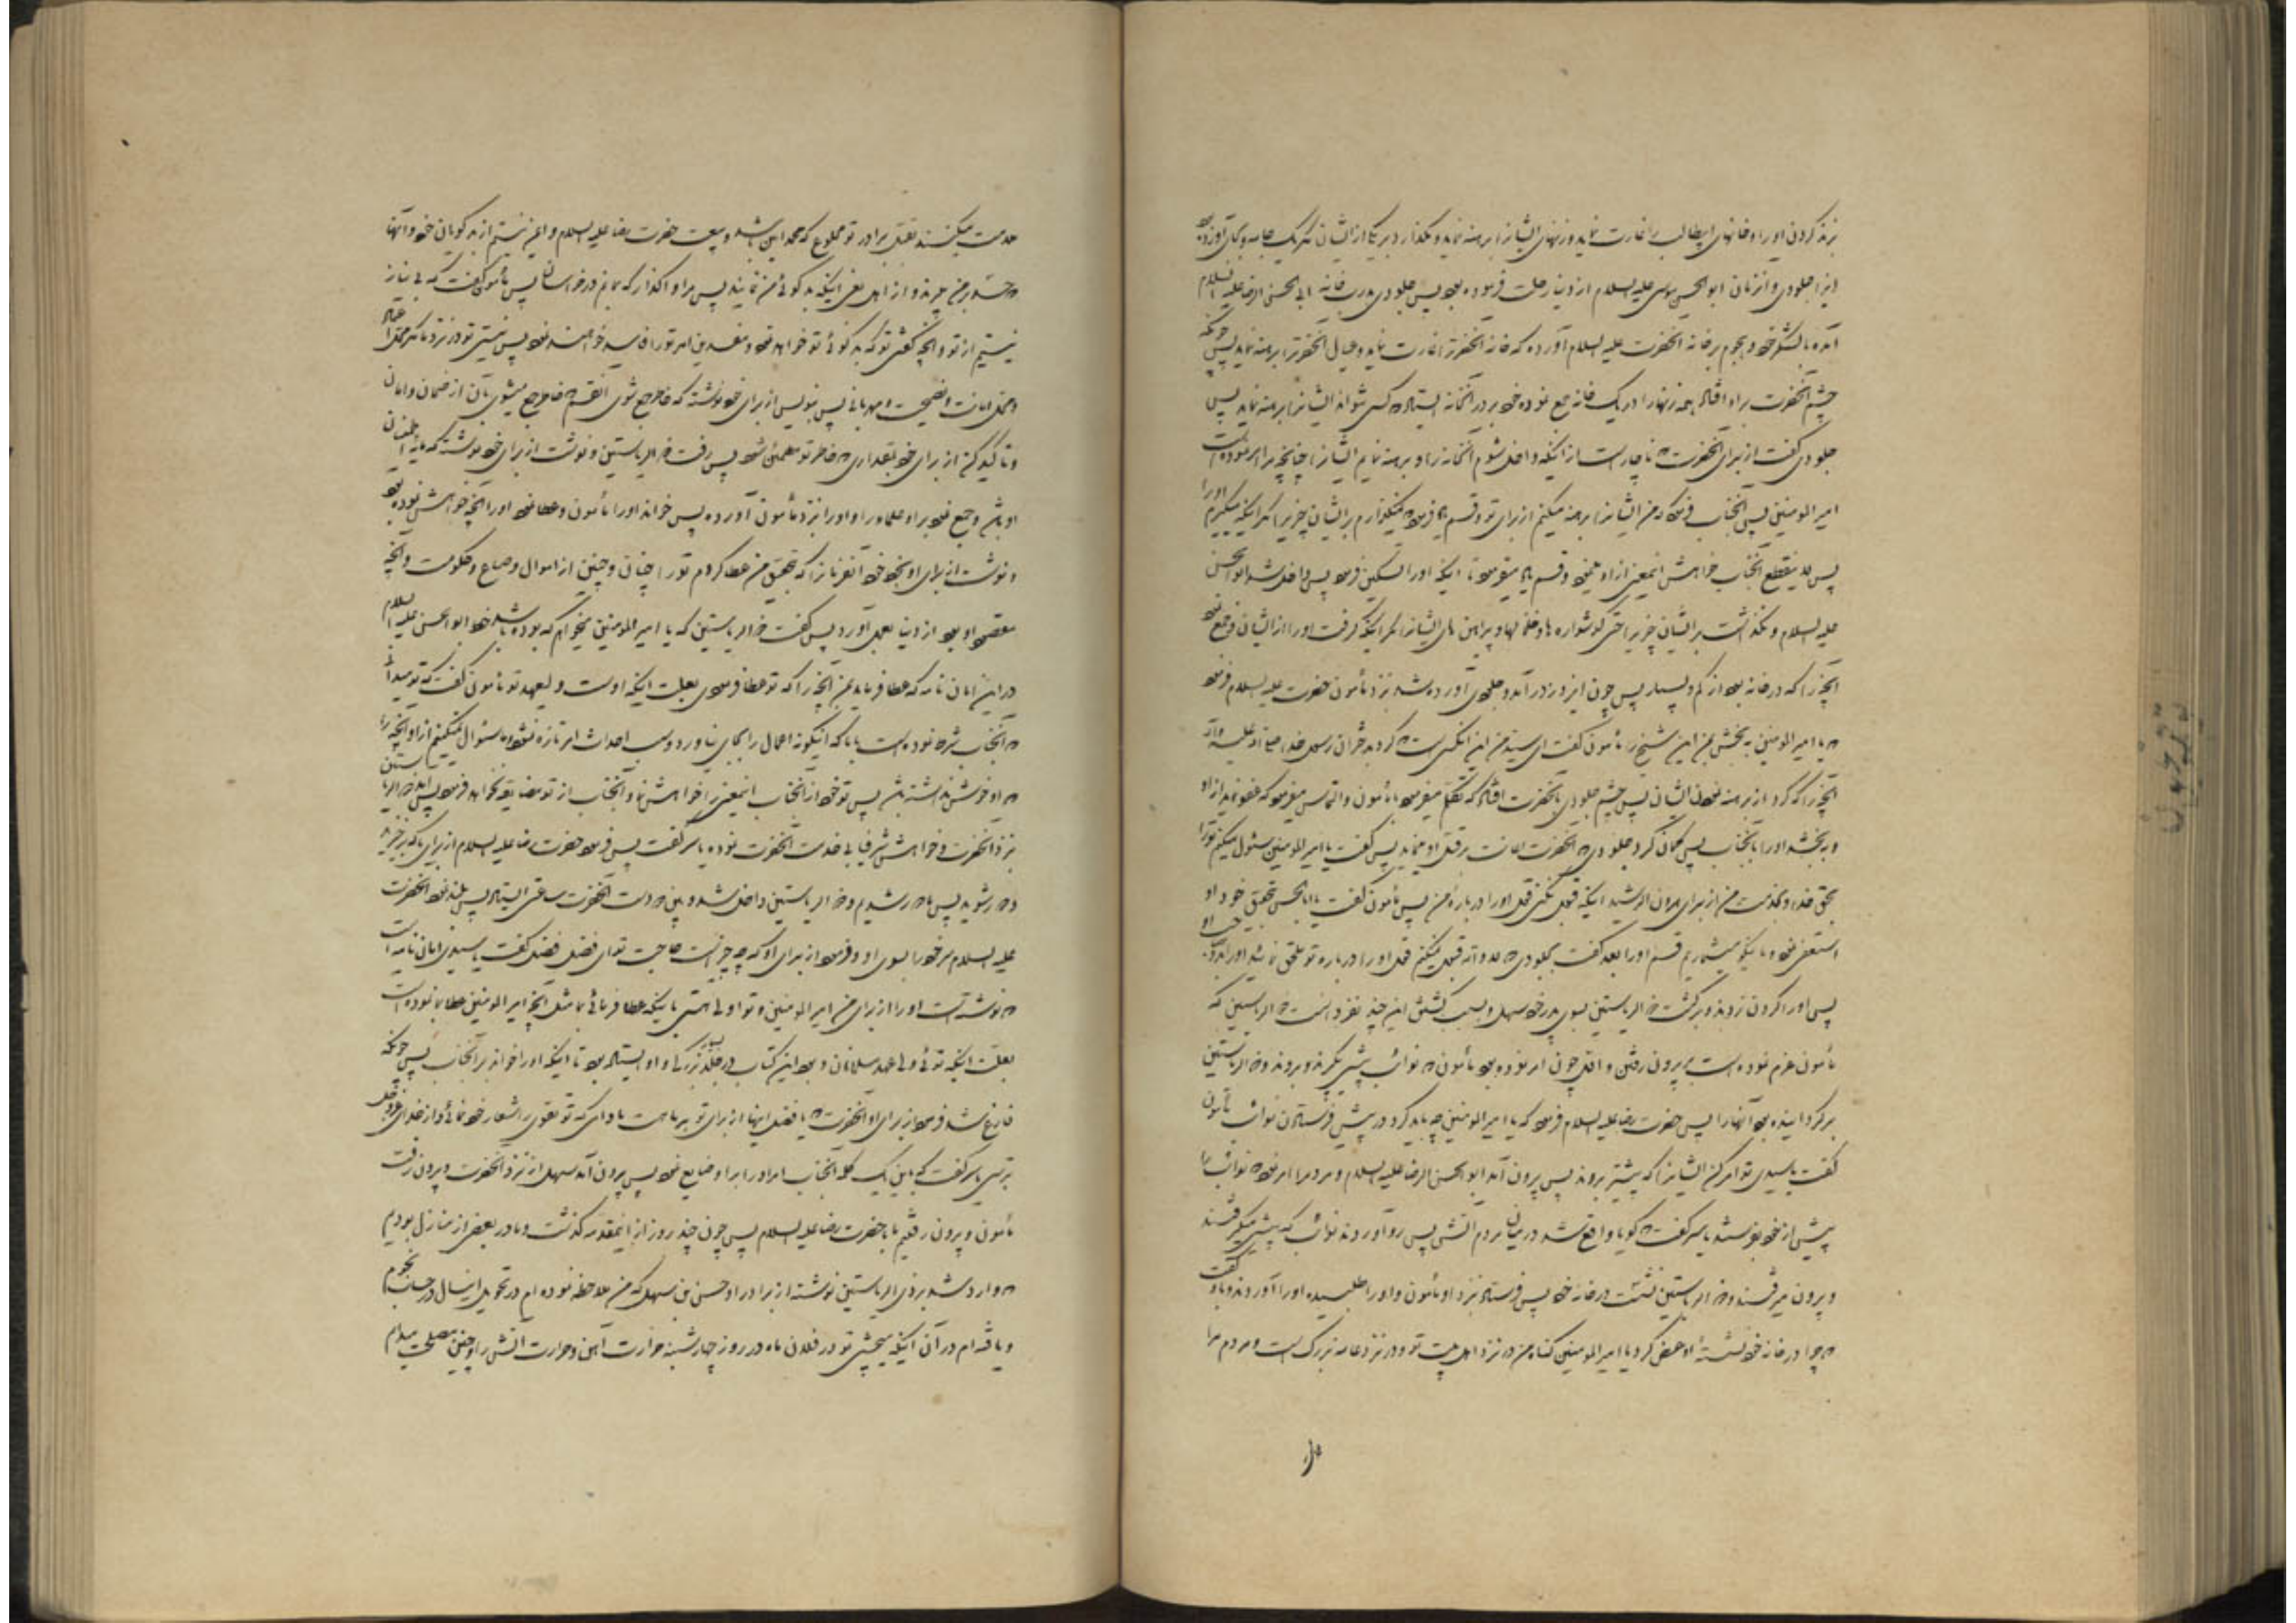 بزند گردن او را و خانهای ابیطالب را غارت نماید و زنهای ایشانرا برهنه نماید و نگذارد بر یکی از ایشان مگر یک جامه و بجای آورده بود
اینرا جلودی و از زمان ابوالحسن موسی علیه السلام از دنیا رحلت فرموده بود پس جلودی بدرب خانه ابی الحسن الرضا علیه السلام
آمده با لشکر خود و هجوم بر خانه آنحضرت علیه السلام آورده که خانه آنحضرترا غارت نماید و عیال آنحضرترا برهنه نماید پس چونکه
چشم آنحضرت بر او افتاد همه زنها را در یک خانه جمع نموده خود بر در آنخانه ایستاد که کسی نتواند ایشانرا برهنه نماید پس
جلودی گفت از برای آنحضرت که ناچار است از اینکه داخل شوم آنخانه را و برهنه نمایم ایشانرا چنانچه مرا امر نموده است
امیر المومنین پس آنجناب فرمود که من ایشانرا برهنه میکنم از برای تو و قسم یاد فرمود که نمیگذارم بر ایشان چیزیرا مگر اینکه میگیرم او را
پس لا ینقطع آنجناب خواهش اینمعنی از او مینمود و قسم یاد میفرمود تا اینکه او را تسکین فرمود پس داخل شد ابوالحسن
علیه السلام و نگذاشت بر ایشان چیزیرا حتی گوشواره ها و خلخالها و پیراهن های ایشانرا مگر اینکه گرفت او را از ایشان و جمع نمود
آنچه را که در خانه بود از کم و بسیار پس چون این روز در آمد و جلودی آورده شد بنزد مأمون حضرت علیه السلام فرمود
که یا امیر المومنین به بخش بمن این شیخ را مأمون گفت ای سید من این آنکس است که کرد بدختران رسول خدا صلی الله علیه و آله
آنچه را که کرد از برهنه نمودن ایشان پس چشم جلودی بآنحضرت افتاد که تکلم میفرمود با مأمون و التماس میفرمود که عفو نماید از او
و به بخشد او را بآنجناب پس گمان کرد جلودی که آنحضرت اعانت بر قتل او مینماید پس گفت یا امیر المومنین سئوال میکنم تو را
بحق خدا و بخدمت من از برای هرون الرشید اینکه قبول نکنی قول او را در باره من پس مأمون گفت یا ابا الحسن بتحقیق خود او
استعفی نمود و ما نیکو میشماریم قسم او را بعد گفت بجلودی که لا والله قبول نمیکنم قول او را در باره تو ملحق نمائید او را بدو صاحب او
پس او را گردن زدند و برگشت ذو الریاستین بسوی پدر خود سهل و بسبب کشتن این چند نفر دانست ذو الریاستین که
مأمون عزم نموده است به بیرون رفتن و اول چون امر نموده بود مأمون که نوائب پیشی بگیرند و بروند و ذو الریاستین
برگردانیده بود آنها را پس حضرت رضا علیه السلام فرمود که یا امیر المومنین چه باید کرد در پیش فرستادن نوائب مأمون
گفت یا سیدی تو امر کن ایشانرا که پیشتر بروند پس بیرون آمد ابو الحسن الرضا علیه السلام و مردم را امر نمود که نوائب را
پیش از خود بفرستند یاسر گفت که گویا واقع شد در میان مردم آتشی پس رو آوردند نوائب که پیشی میگرفتند
و بیرون میرفتند و ذو الریاستین نشست در خانه خود پس فرستاد بنزد او مأمون و او را طلبیده او را آوردند و باو گفت
که چرا در خانه خود نشسته او عرض کرد یا امیر المومنین گناه من در نزد اهل بیت تو و در نزد عامه بزرگ است و مردم مرا
ملامت میکنند بقتل برادر تو مخلوع که محمد امین باشد و بیعت حضرت رضا علیه السلام و ایمن نیستم از بد گویان خود و آنها
که حسد بر من میبرند و از اهل بغی اینکه بد گوئی من نمایند پس مرا واگذار که بمانم در خراسان پس مأمون گفت که بی نیاز
نیستیم از تو و آنچه گفتی تو که بد گوئی تو خواهد نمود و مفسدین امر تو را فاسد خواهند نمود پس نیستی تو در نزد ما مگر محل اعتماد
و محل امانت و نصیحت و مهربانی پس بنویس از برای خود نوشته که خاطر جمع شوی آنقسم که خاطر جمع میشوی بآن از ضمان و امان
و تأکید کن از برای خود بقداری که خاطر تو مطمئن شود پس رفت ذو الریاستین و نوشت از برای خود نوشته که مایه اطمینان
او باشد و جمع نمود بر او علماء را و او را نزد مأمون آورده پس خواند او را مأمون و عطا نمود او را آنچه خواهش نموده بود
و نوشت از برای او بخط خود آنفرمانرا که بتحقیق من عطا کردم تو را چنان و چنین از اموال و ضیاع و حکومت و آنچه
مقصود او بود از دنیا بعمل آورد پس گفت ذو الریاستین که یا امیر المومنین میخواهم که بوده باشد خط ابو الحسن علیه السلام
در این امان نامه که عطا فرماید بمن آنچه را که تو عطا فرمودی بعلت اینکه اوست ولیعهد تو مأمون گفت که تو میدانی
که آنجناب شرط نموده است با ما که اینگونه اعمال را بجای نیاورد و سبب احداث امر تازه نشود ما سئوال نمیکنیم از او آنچه را
که او خوش نداشته باشد پس تو خود از آنجناب اینمعنی را خواهش نما و آنجناب از تو مضایقه نخواهد فرمود پس آمد ذو الریاستین
نزد آنحضرت و خواهش شرفیابی خدمت آنحضرت نموده یاسر گفت پس فرمود حضرت رضا علیه السلام از برای ما که برخیزید
و دور شوید پس ما دور شدیم و ذو الریاستین داخل شد و پیش روی آنحضرت ساعتی ایستاد پس بلند نمود آنحضرت
علیه السلام سر خود را بسوی او و فرمود از برای او که چه چیز است حاجت تو ای فضل فضل گفت یا سیدی امان نامه است
که نوشته است او را از برای من امیر المومنین و تو اولی هستی باینکه عطا فرمائی بما مثل آنچه امیر المومنین عطا بما نموده است
بعلت اینکه توئی ولی عهد مسلمانان و بود این کتاب در جلد بزرگی و او ایستاد بود تا اینکه او را خواند بر آنجناب پس چونکه
فارغ شد فرمود از برای او آنحضرت که یا فضل اینها از برای تو بر ما هست مادامی که تو تقوی را شعار خود نمائی و از خدای عز و جل
بترسی یاسر گفت که باین یک کلمه آنجناب امر او را بر او ضایع نمود پس بیرون آمد سهل از نزد آنحضرت و بیرون رفت
مأمون و بیرون رفتیم ما با حضرت رضا علیه السلام پس چون چند روز از اینمقدمه گذشت و ما در بعضی از منازل بودیم
که وارد شد بر ذی الریاستین نوشته از برادر او حسن بن سهل که من ملاحظه نموده ام در تحویل اینسال در حساب نجوم
و یافته ام در آن اینکه میچشی تو در فلان ماه در روز چهارشنبه حرارت آهن و حرارت آتش را و چنین مصلحت میدانم